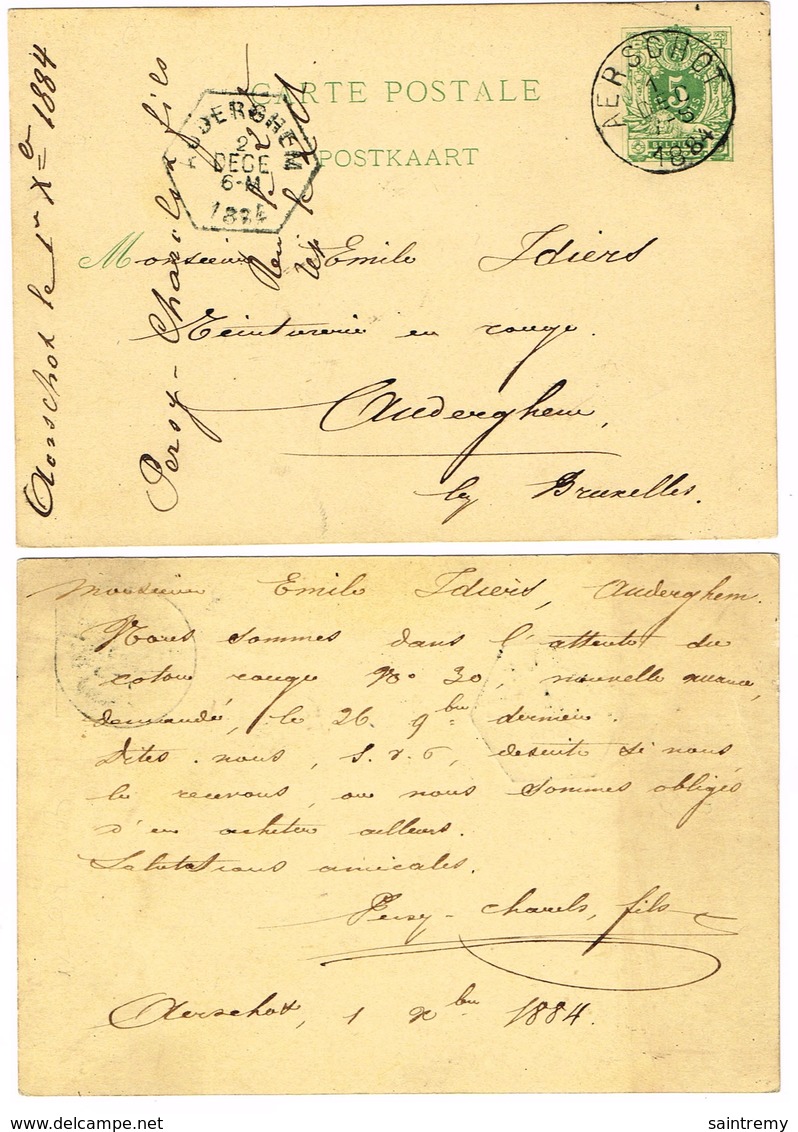 CARTE POSTALE
POSTKAART
AERSCHOT
1
DEC
1884
5
BELGIQUE
AUDERGHEM
2
DECE
6-M
1884
Monsieur Emile Idiers
Teinturerie en rouge.
Auderghem,
lez Bruxelles.
Aerschot le 1er Xbre 1884
Persy-Charels fils
Monsieur Emile Idiers, Auderghem.
Nous sommes dans l'attente du
coton rouge No. 30, nouvelle nuance,
demandé, le 26. 9bre dernier.
Dites-nous, s.v.p, desuite si nous
le recevons, ou nous sommes obligés
d'en acheter ailleurs.
Salutations amicales.
Persy-Charels, fils
Aerschot, 1 xbre 1884.
saintremy